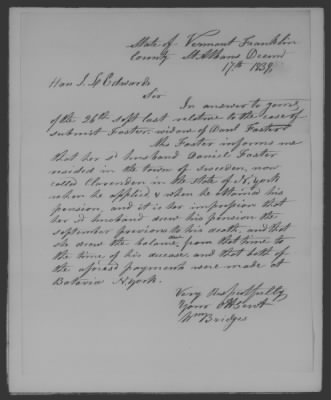 State of Vermont Franklin
County St Albans Decem
17th 1839
Hon J. L Edwards
Sir
In answer to yours
of the 26th Sept last relative to the case of
submit Foster widow of Danl Foster
Mrs Foster informs me
that her sd husband Daniel Foster
resided in the town of Sweeden, now
called Clarenden in the State of N. York
when he applied & when he obtained his
pension, and it is her impression that
her sd husband drew his pension the
september previous to his death, and that
she drew the balance from that time to
the time of his decease, and that both of
the aforesd payments were made at
Batavia N. York.
Very Respectfully
Your Obt Servt
Wm Bridges